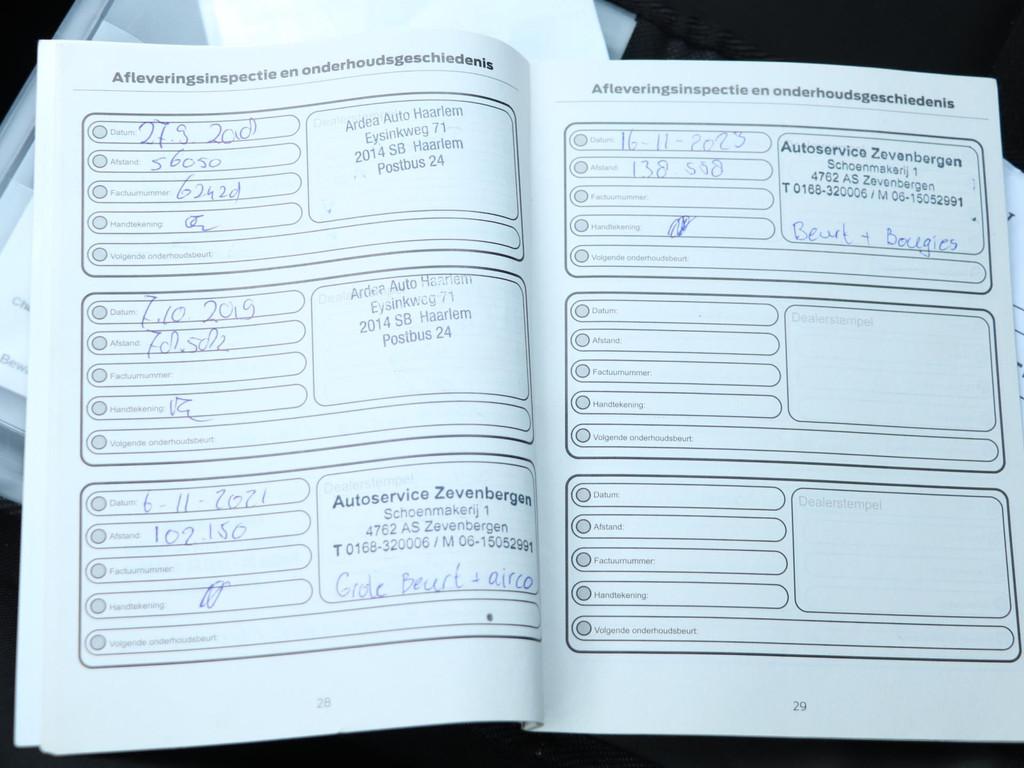 Afleveringsinspectie en onderhoudsgeschiedenis
Datum:
Afstand: 56050
Factuurnummer: 62420
Handtekening:
Volgende onderhoudsbeurt:
Ardea Auto Haarlem
Eysinkweg 71
2014 SB Haarlem
Postbus 24
Datum: 7.10.2019
Afstand:
Factuurnummer:
Handtekening:
Volgende onderhoudsbeurt:
Ardea Auto Haarlem
Eysinkweg 71
2014 SB Haarlem
Postbus 24
Datum: 6-11-2021
Afstand: 102.150
Factuurnummer:
Handtekening:
Volgende onderhoudsbeurt:
Dealerstempel
Autoservice Zevenbergen
Schoenmakerij 1
4762 AS Zevenbergen
T 0168-320006 / M 06-15052991
Grote Beurt + airco
28
Afleveringsinspectie en onderhoudsgeschiedenis
Datum: 16-11-2023
Afstand: 138.558
Factuurnummer:
Handtekening:
Volgende onderhoudsbeurt:
Autoservice Zevenbergen
Schoenmakerij 1
4762 AS Zevenbergen
T 0168-320006 / M 06-15052991
Beurt + Bougies
Datum:
Afstand:
Factuurnummer:
Handtekening:
Volgende onderhoudsbeurt:
Dealerstempel
Datum:
Afstand:
Factuurnummer:
Handtekening:
Volgende onderhoudsbeurt:
Dealerstempel
29